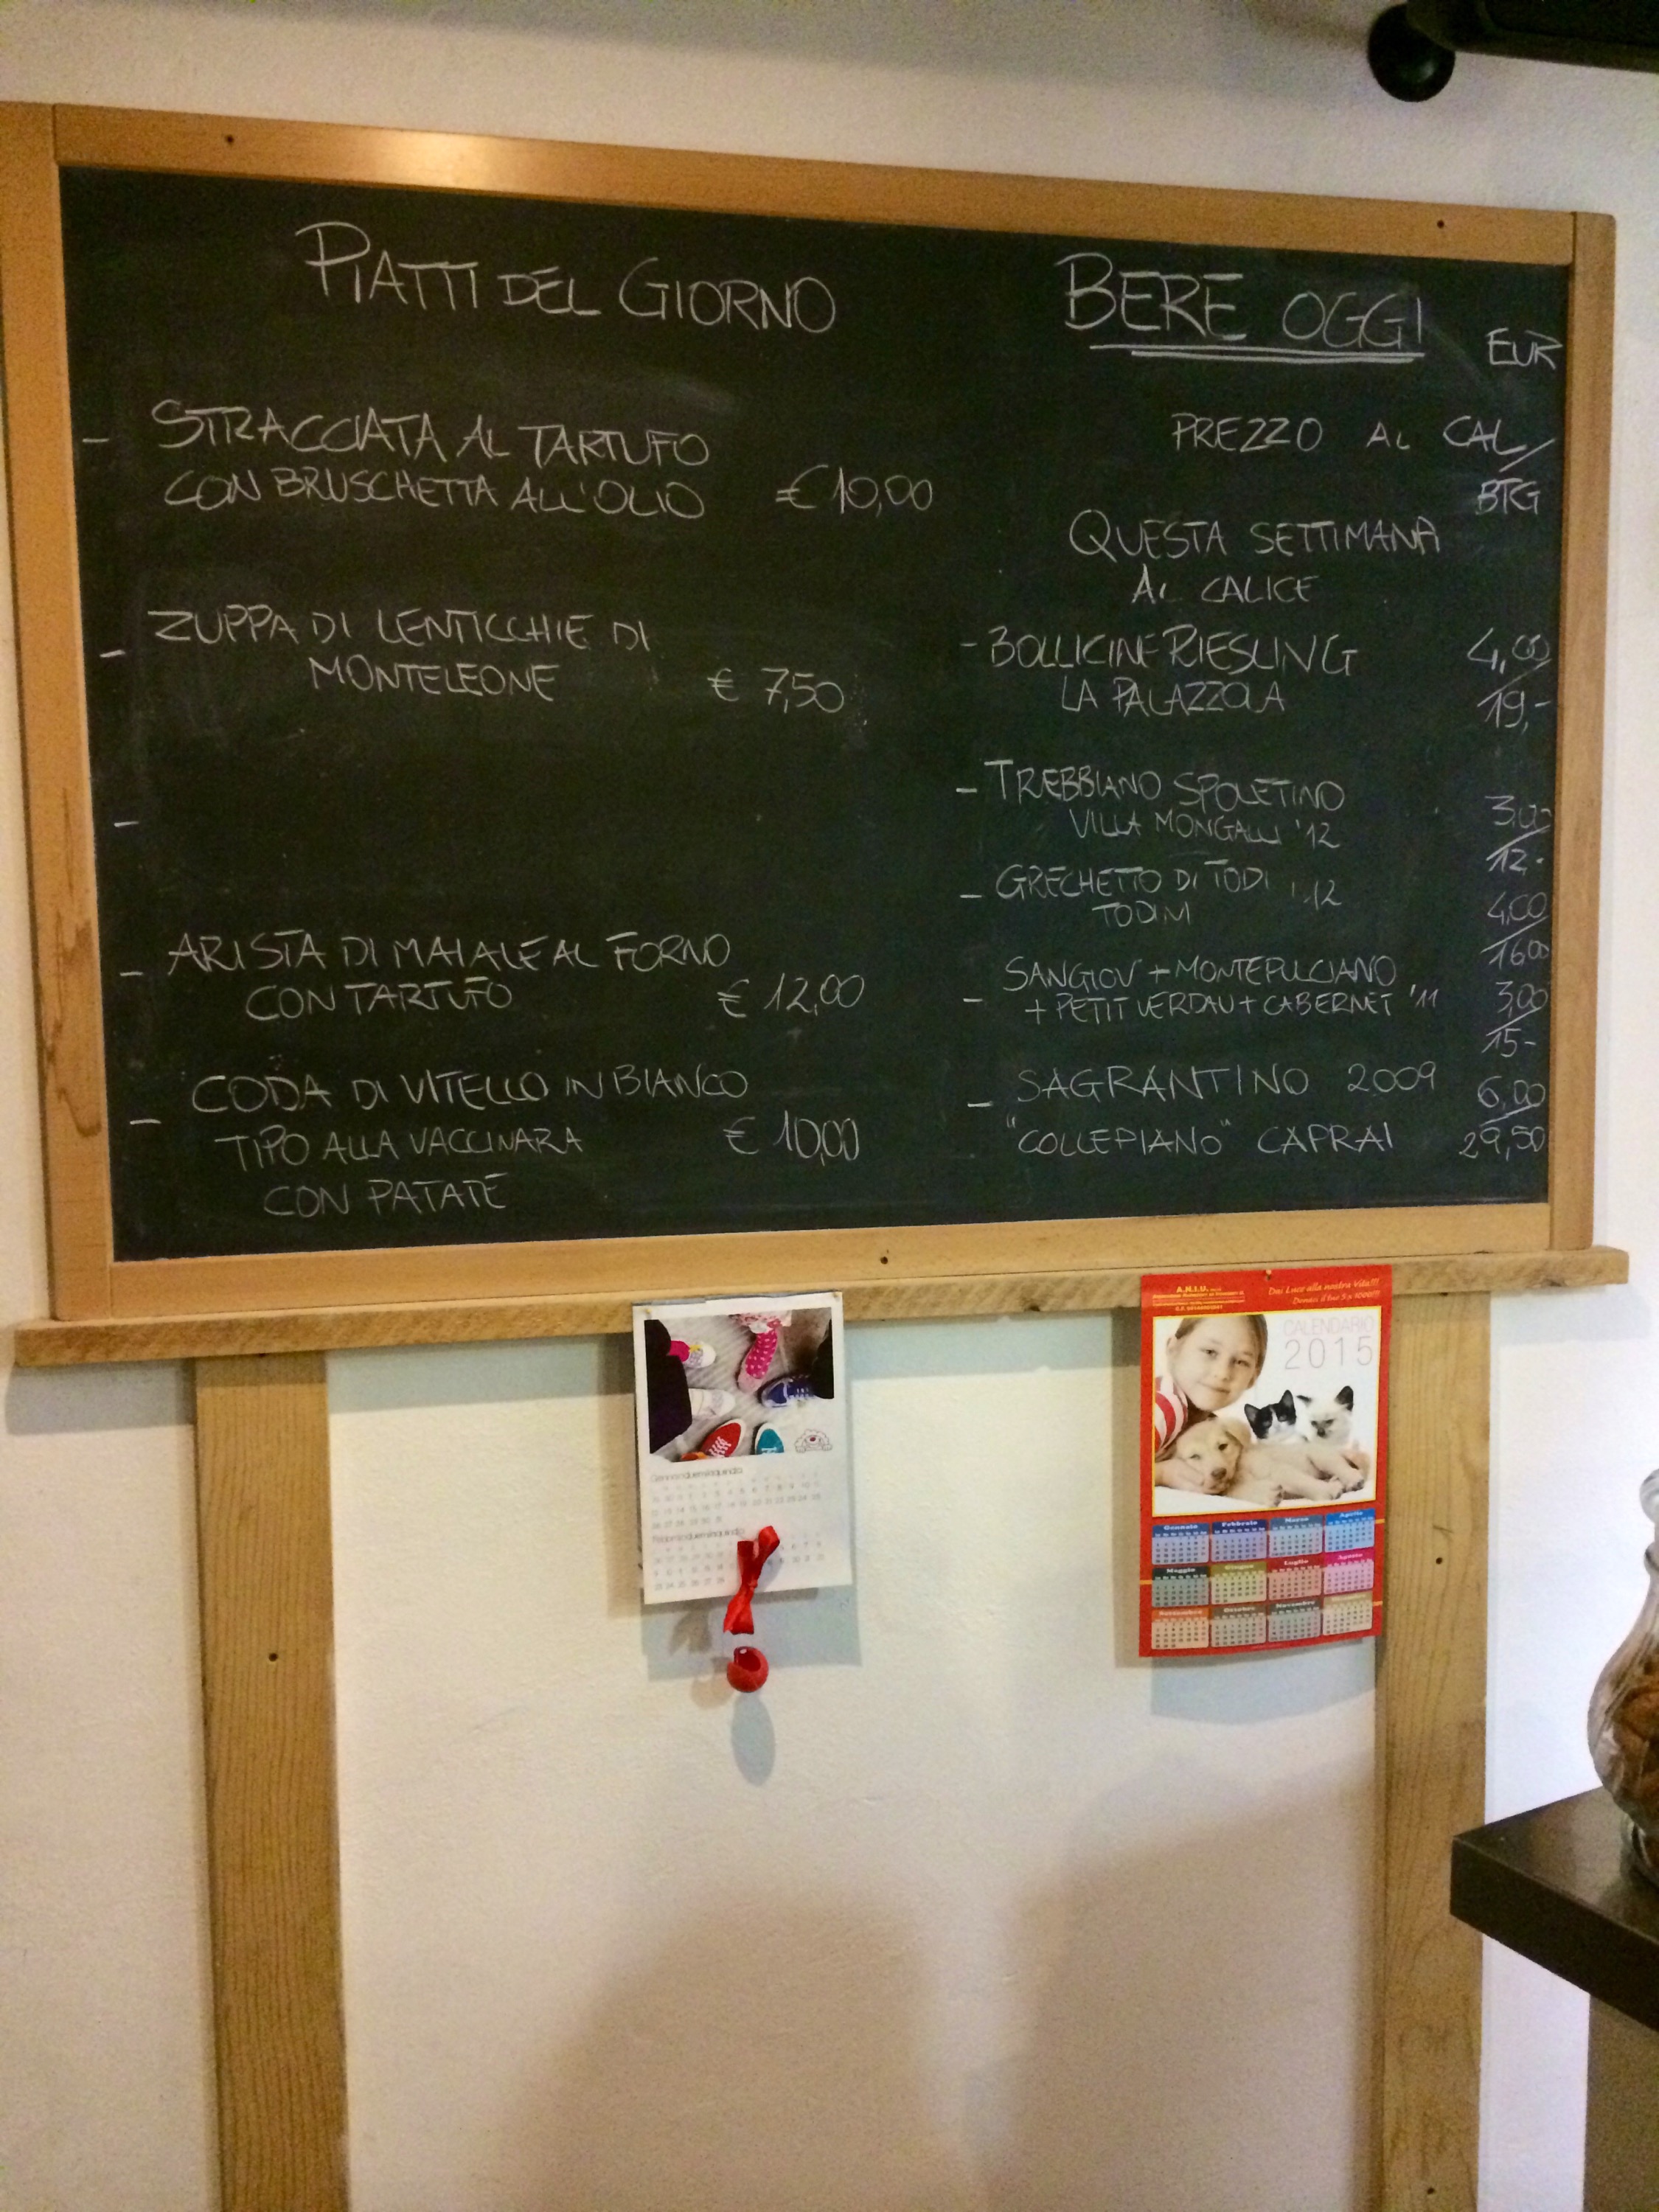 PIATTI DEL GIORNO
- STRACCIATA AL TARTUFO
CON BRUSCHETTA ALL'OLIO € 10,00
- ZUPPA DI LENTICCHIE DI
MONTELEONE € 7,50
-
- ARISTA DI MAIALE AL FORNO
CON TARTUFO € 12,00
- CODA DI VITELLO IN BIANCO
TIPO ALLA VACCINARA € 10,00
CON PATATE
BERE OGGI
EUR
PREZZO AL CAL/
BTG
QUESTA SETTIMANA
AL CALICE
- BOLLICINE RIESLING 4,00/
LA PALAZZOLA 19,-
- TREBBIANO SPOLETINO 3,00/
VILLA MONGALLI '12 12.
- GRECHETTO DI TODI '12 4,00/
TODINI 1600
- SANGIOV + MONTEPULCIANO 3,00/
+ PETIT VERDAU + CABERNET '11 15-
- SAGRANTINO 2009 6,00/
"COLLEPIANO" CAPRAI 29,50
A.N.I.U.
Dai Luce alla nostra Vita!!!
Donaci il tuo 5 x 1000!!!
CALENDARIO
2015
Gennaio Febbraio Marzo Aprile
Maggio Giugno Luglio Agosto
Settembre Ottobre Novembre